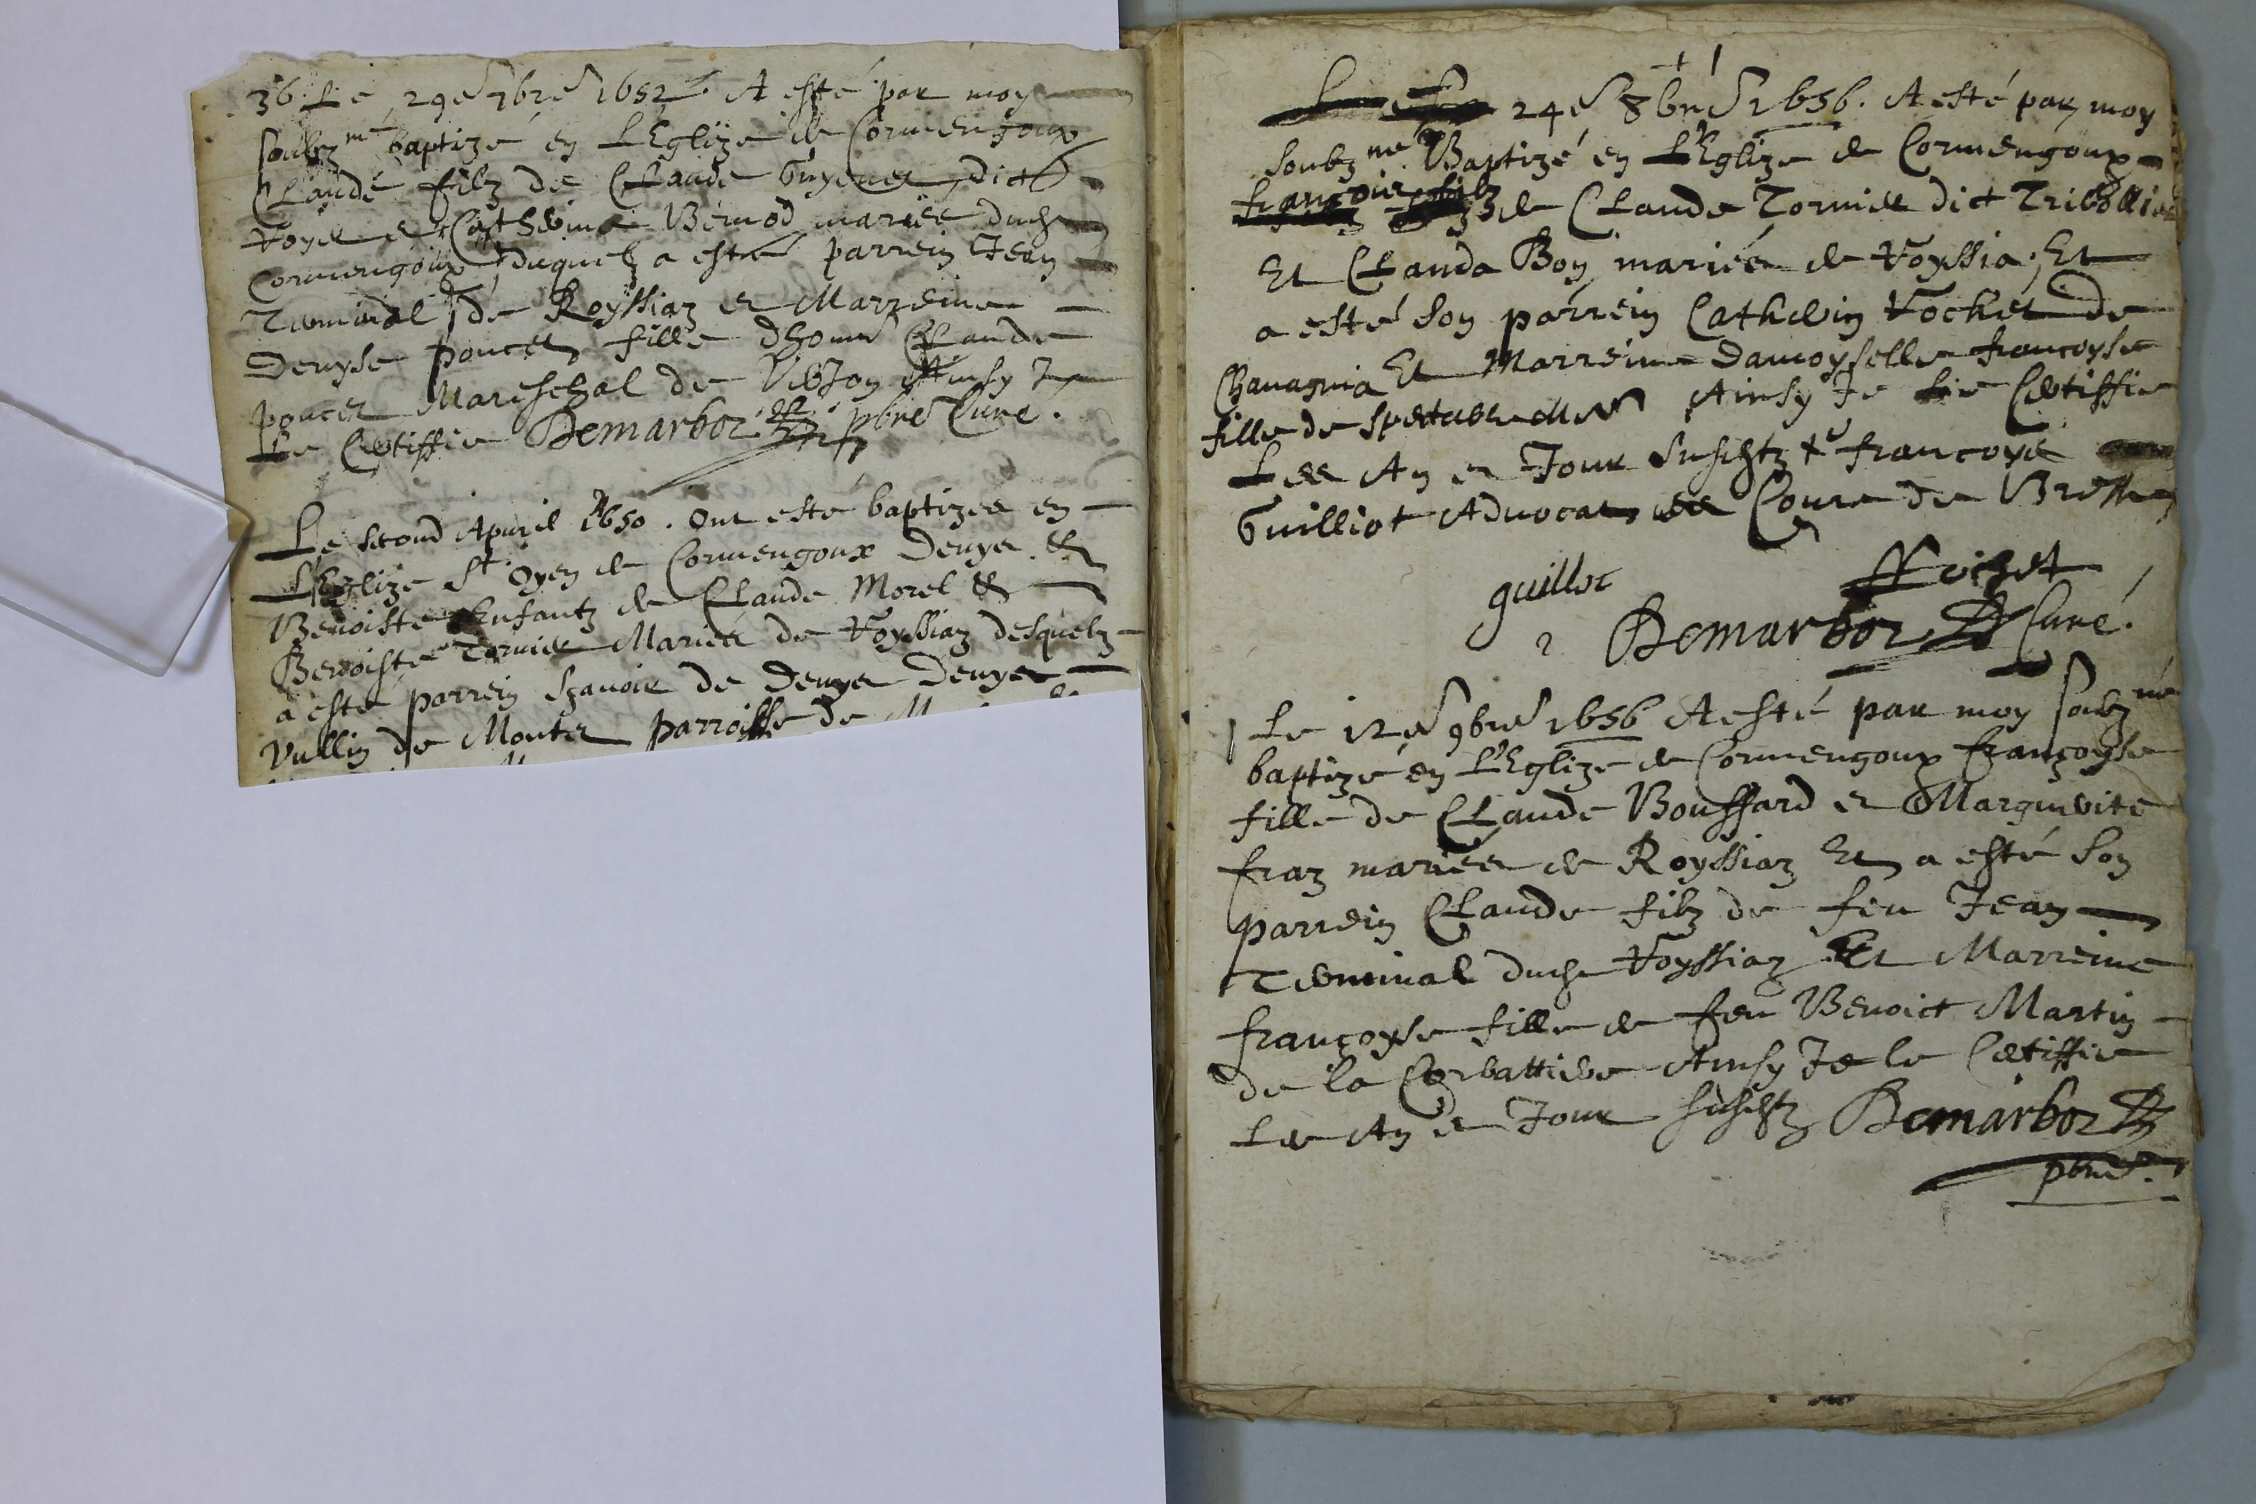 36. Le 29e 7bre 1652. A esté par moy
soubzné baptizé en L'Eglize de Cormengoux
Claude filz de Claude Guyenet, dict
Roye et Catherine Bernod mariés dudt
Cormengoux, duquel a esté parrein Jean
Terminal de Royssiaz et Marreine
Denyse poncet fille dhonne Claude
poncet Mareschal de Ainsy Je
Le Certiffie Demarboz pbre Curé.
Le second Apuril 1650. Ont esté baptizés en
L'Eglize St Oyen de Cormengoux Denys &
Benoiste Enfantz de Claude Morel &
Benoiste Tornier Mariés de Royssiaz desquelz
a esté parrein sçavoir de Denys Denys
Vullin de Montz parroisse de
24e 8bre 1656. A esté par moy
soubzné Baptizé en L'Eglize de Cormengoux
françois filz de Claude Tornier dict Tribollier
Et Clauda Boy mariés de Royssia; Et
a esté son parrein Catherin Rochet de
Chavagnia Et Marreine damoyselle francoyse
fille de spectable Mre Ainsy Je Le Certiffie
Les An et Jour susdtz + francoys
Guilliot Advocat es Cours de Bresse
guillot
Demarboz Curé.
Le 12e 9bre 1656 A esté par moy soubzné
baptizé en L'Eglize de Cormengoux françoyse
fille de Claude Bouffard et Marguerite
fraz mariés de Royssiaz Et a esté son
parrein Claude filz de feu Jean
Terminal dudt Royssiaz Et Marreine
françoyse fille de feu Benoict Martin
de la Corbattiere Ainsy Je le Certiffie
Les An et Jour susdtz Demarboz
pbre.